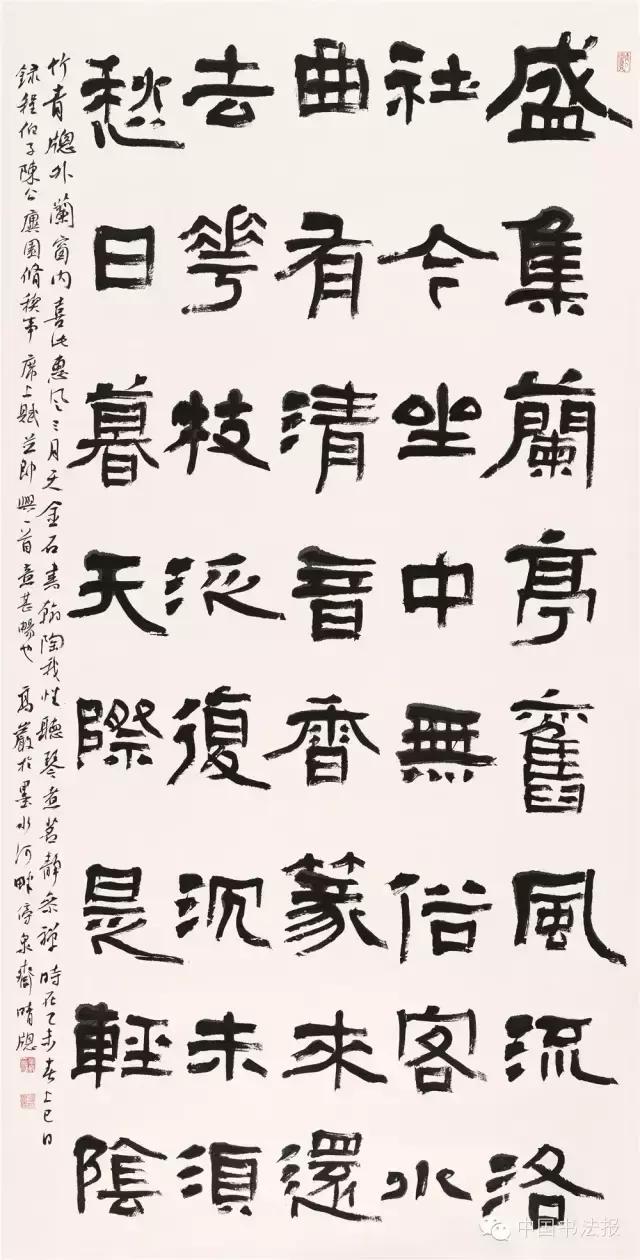 盛集蘭亭舊風流洛
社今坐中無俗客水
曲有清音香篆來還
去花枝泛復沉未須
愁日暮天際是輕陰
竹青牕外蘭窗内喜此惠風三月天金石書翰陶我性聽琴煮茗静参禪 時在乙未春上巳日
録程伯子陳公廙園脩禊事席上賦並即興一首意甚暢也 高嚴於墨水河畔停泉齋晴牕
中国书法报